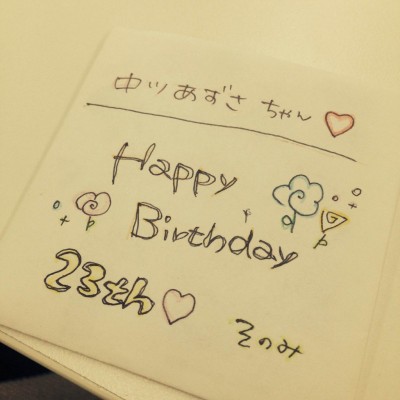 中ツあずさ ちゃん♡
Happy
Birthday
23さん♡
そのみ